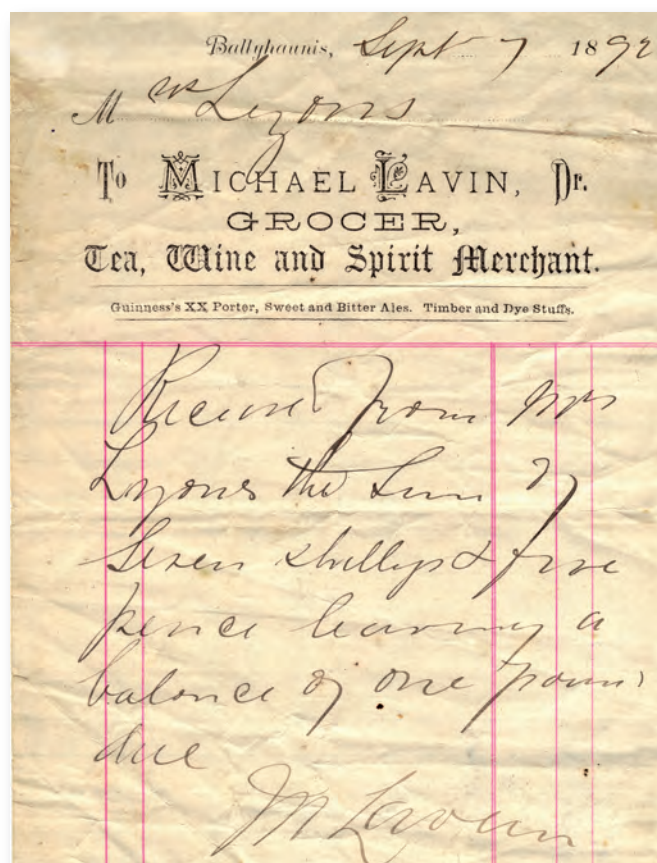 Ballyhaunis, Sept 7 1892
Mrs Lyons
To MICHAEL LAVIN, Dr.
GROCER,
Tea, Wine and Spirit Merchant.
Guinness's XX Porter, Sweet and Bitter Ales. Timber and Dye Stuffs.
Received from Mrs
Lyons the Sum of
Seven shillings & five
pence leaving a
balance of one pound
due
M Lavin